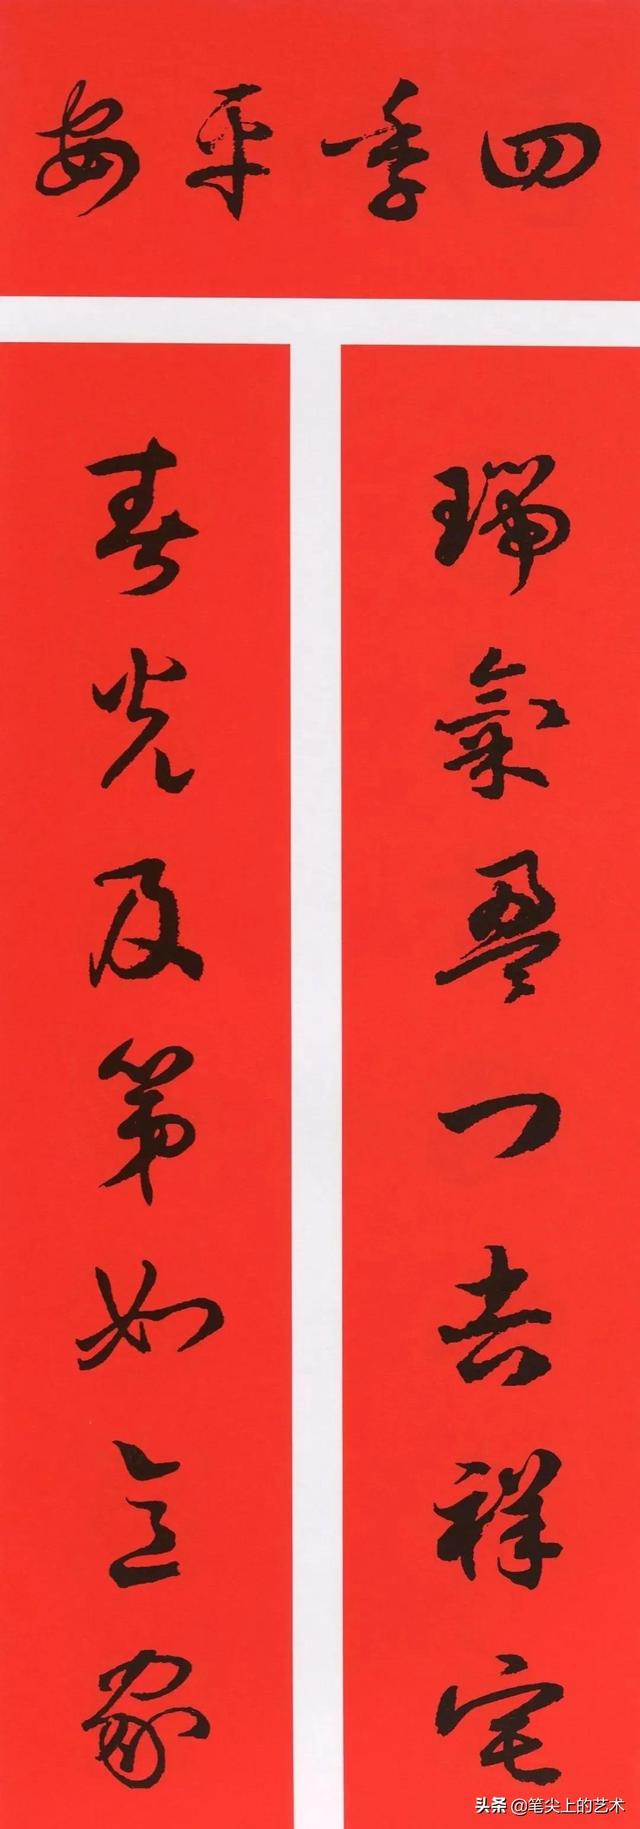 四季平安
瑞氣盈門吉祥宅
春光及第如意家
头条 @笔尖上的艺术